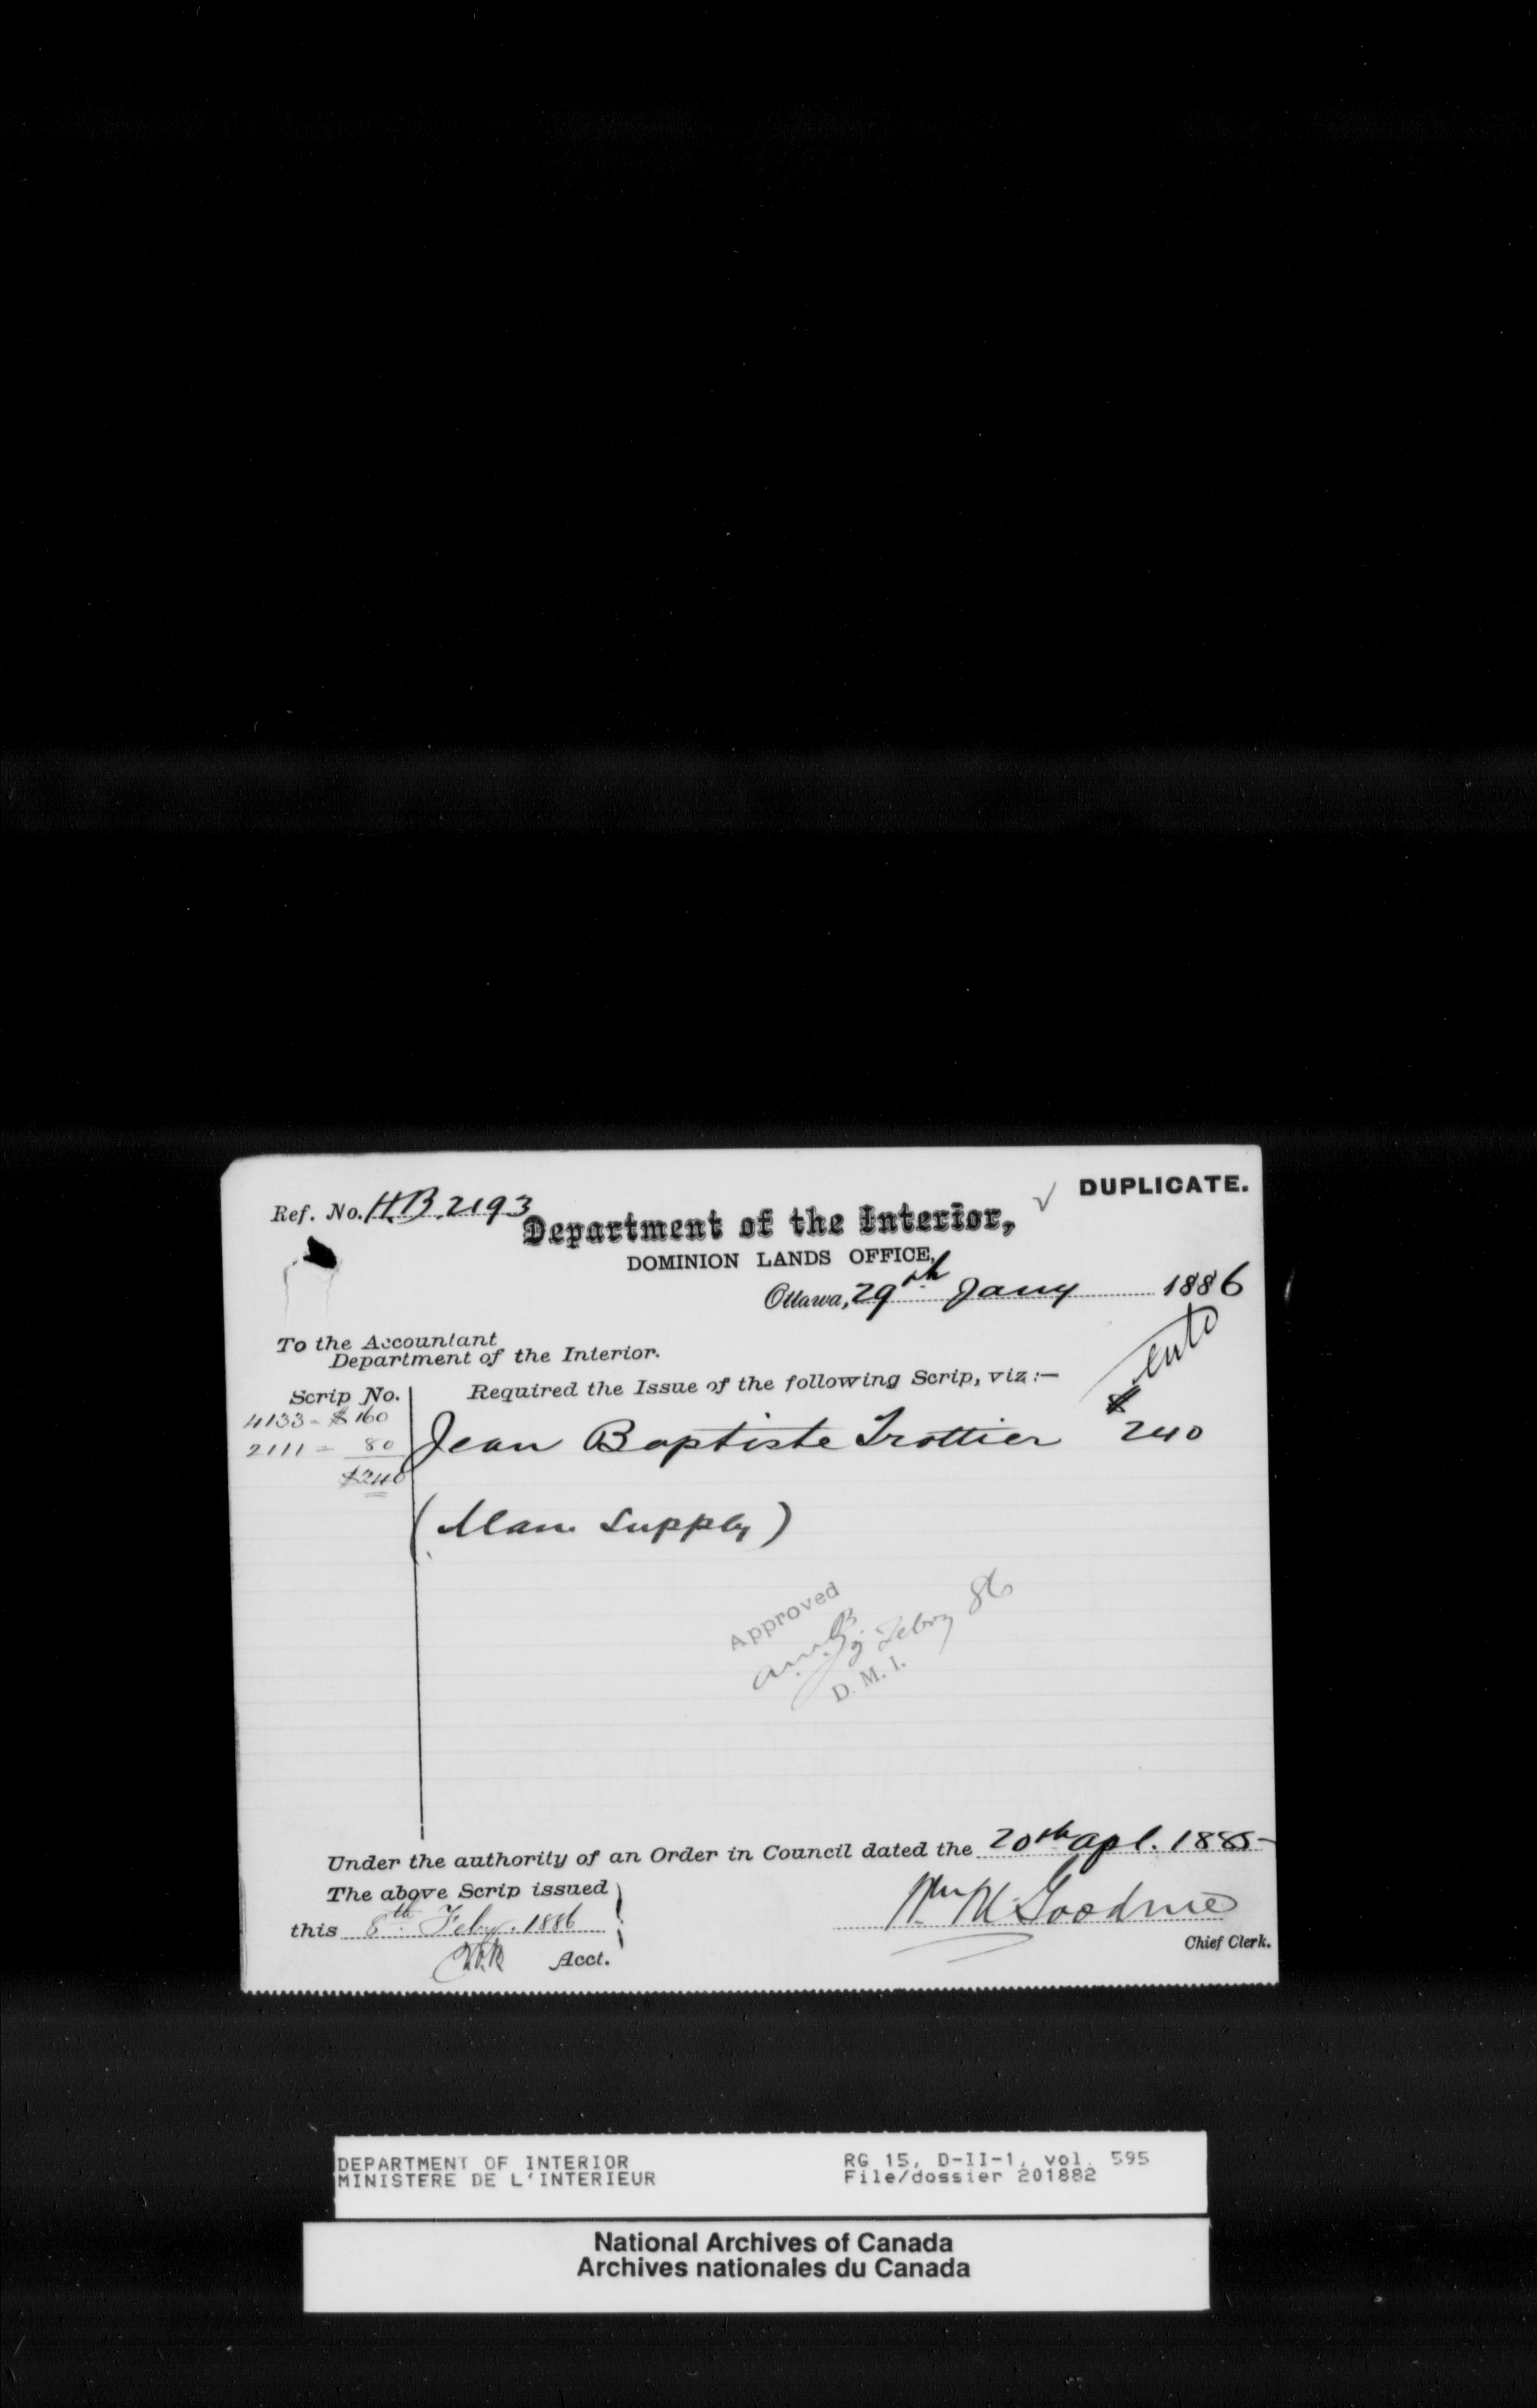 Ref. No. H.B. 2193
DUPLICATE.
Department of the Interior,
DOMINION LANDS OFFICE,
Ottawa, 29th Jany 1886
To the Accountant
Department of the Interior.
Scrip No.
Required the Issue of the following Scrip, viz:—
4133 = $160
$
2111 = 80
Jean Baptiste Trottier 240
$240
(Man. Supply)
Approved
Febry 86
D. M. I.
Under the authority of an Order in Council dated the 20th Apl. 1885
The above Scrip issued
this 8th Feby. 1886
Acct.
Chief Clerk.
DEPARTMENT OF INTERIOR
MINISTERE DE L'INTERIEUR
RG 15, D-II-1, vol. 595
File/dossier 201882
National Archives of Canada
Archives nationales du Canada